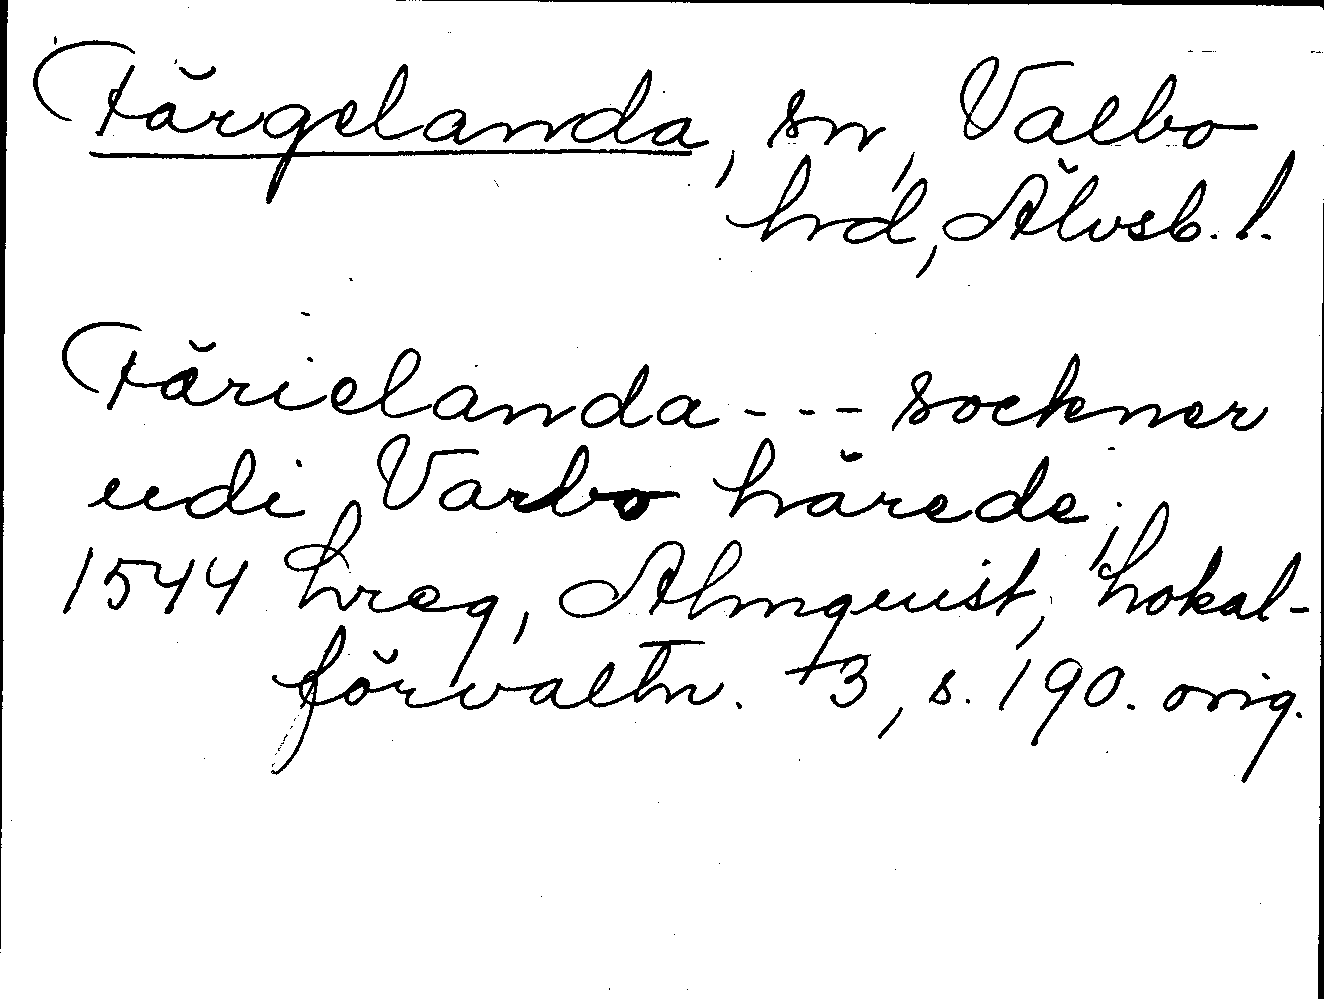 Färgelanda, sn, Valbo
hrd, Älvsb. l.
Färielanda - - - sockner
udi Varbo härede;
1544 hreg, Almquist, Lokal-
förvaltn. 3, s. 190. orig.